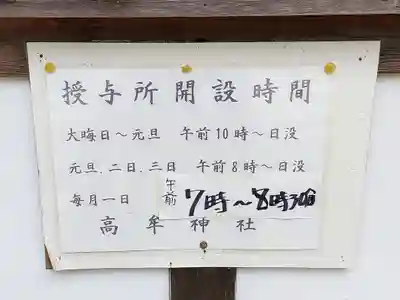 授与所開設時間
大晦日～元旦 午前10時～日没
元旦、二日、三日 午前8時～日没
毎月一日 午前 7時～8時30分
高牟神社